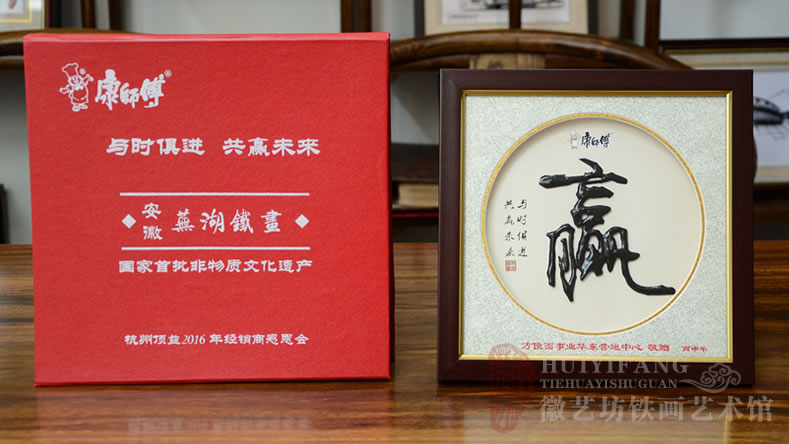 康師傅®
与时俱进 共赢未来
安徽 蕪湖鐵畫
国家首批非物质文化遗产
杭州顶益2016年经销商恳恩会
康師傅
赢
与时俱进
共赢未来
方便面事业华东营运中心 敬赠 丙申年
HUIYIFANG
TIEHUAYISHUGUAN
徽艺坊铁画艺术馆